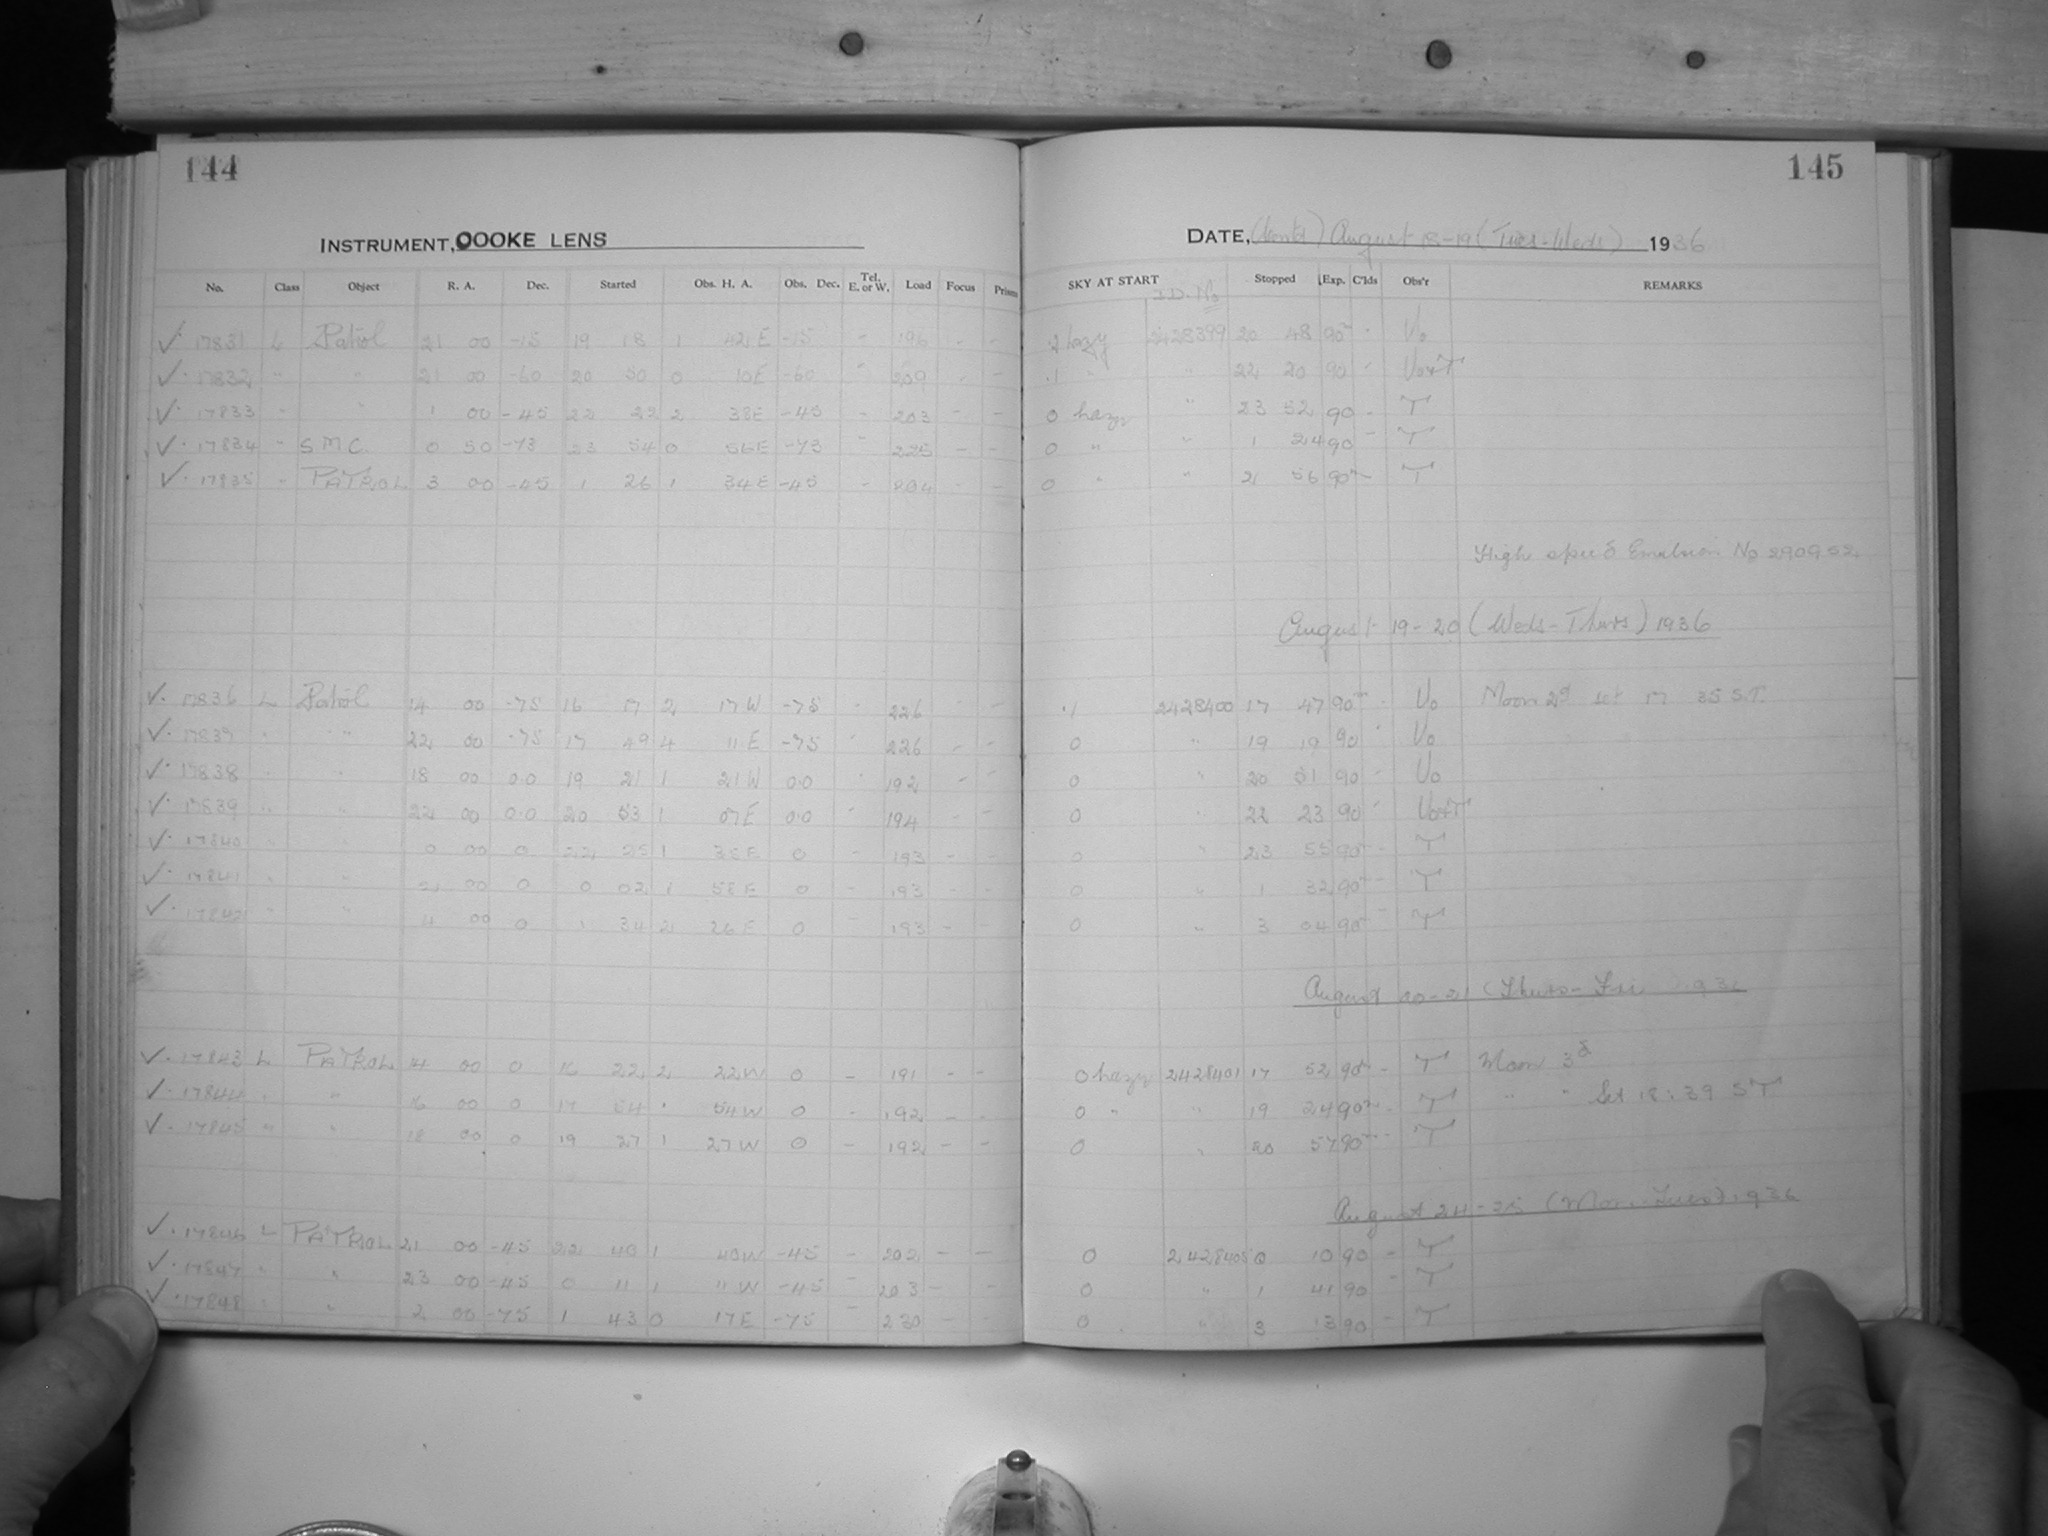 144
145
INSTRUMENT, OOOKE LENS
DATE, (cont'd) August 18-19 (Tues-Weds) 1936
No. Class Object R. A. Dec. Started Obs. H. A. Obs. Dec. Tel. E. or W. Load Focus Prism SKY AT START J.D. No Stopped Exp. C'lds Obs'r REMARKS
✓. 17831 L Patrol 21 00 -15 19 18 1 42 E -15 - 196 - - 2 hazy 2428399 20 48 90m - Uo
✓. 17832 " " 21 00 -60 20 50 0 10E -60 " 209 - - .1 " " 22 20 90 - Uo+T
✓. 17833 " " 1 00 -45 22 22 2 38E -45 - 203 - - 0 hazy " 23 52 90 - T
✓. 17834 " SMC. 0 50 -73 23 54 0 56E -73 " 225 - - 0 " " 1 24 90 - T
✓. 17835 " PATROL 3 00 -45 1 26 1 34E -45 - 204 - - 0 " " 2 56 90m - T
High speed Emulsion No 290952
August 19-20 (Weds-Thurs) 1936
✓. 17836 L Patrol 14 00 -75 16 17 2 17 W -75 - 226 - - .1 2428400 17 47 90m - Uo Moon 2d set 17 35 S.T.
✓. 17837 " " 22 00 -75 17 49 4 11 E -75 " 226 - - 0 " 19 19 90 " Uo
✓. 17838 " " 18 00 0.0 19 21 1 21 W 0.0 " 192 - - 0 " 20 51 90 - Uo
✓. 17839 " " 22 00 0.0 20 53 1 07E 0.0 " 194 - - 0 " 22 23 90 " Uo+T
✓. 17840 " " 0 00 0 22 25 1 35E 0 - 193 - - 0 " 23 55 90m - T
✓. 17841 " " 2 00 0 0 02 1 58E 0 - 193 - - 0 " 1 32 90m - T
✓. 17842 " " 4 00 0 1 34 2 26E 0 - 193 - - 0 " 3 04 90m - T
August 20-21 (Thurs-Fri) 1936
✓. 17843 L PATROL 14 00 0 16 22 2 22W 0 - 191 - - 0 hazy 2428401 17 52 90m - T Moon 3d
✓. 17844 " " 16 00 0 17 54 1 54W 0 - 192 - - 0 " " 19 24 90m - T " " Set 18:39 ST
✓. 17845 " " 18 00 0 19 27 1 27W 0 - 192 - - 0 " 20 57 90m - T
August 24-25 (Mon-Tues) 1936
✓. 17846 L PATROL 21 00 -45 22 40 1 40W -45 - 202 - - 0 2428405 0 10 90 - T
✓. 17847 " " 23 00 -45 0 11 1 11W -45 - 203 - - 0 " 1 41 90 - T
✓. 17848 " " 2 00 -75 1 43 0 17E -75 - 230 - - 0 " 3 13 90 - T